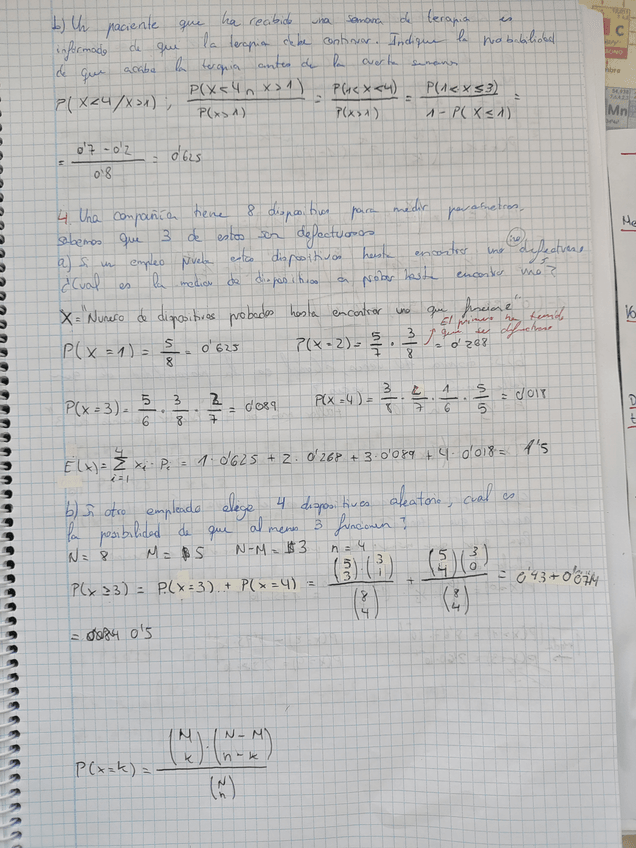 b) Un paciente que ha recibido una semana de terapia es
informado de que la terapia debe continuar. Indique la probabilidad
de que acabe la terapia antes de la cuarta semana
P(X<4/X>1); P(X<4 ∩ X>1) / P(X>1) = P(1<X<4) / P(X>1) = P(1<X≤3) / 1-P(X≤1) =
= 0'7-0'2 / 0'8 = 0'625
4. Una compañía tiene 8 dispositivos para medir parametros.
sabemos que 3 de estos son defectuosos
a) Si un empleo prueba estos dispositivos hasta encontrar uno (no) defectuoso
¿Cual es la media de dispositivos a probar hasta encontrar uno?
X="Numero de dispositivos probados hasta encontrar uno que funcione"
El primero ha tenido
que ser defectuoso
P(X=1) = 5/8 = 0'625 P(X=2) = 5/7 · 3/8 = 0'268
P(X=3) = 5/6 · 3/8 · 2/7 = 0'089 P(X=4) = 3/8 · 2/7 · 1/6 · 5/5 = 0'018
E(x) = ∑ i=1 4 xi · Pi = 1·0'625 + 2·0'268 + 3·0'089 + 4·0'018 = 1'5
b) Si otro empleado elege 4 dispositivos aleatorio, cual es
la posibilidad de que al menos 3 funcionen?
N=8 M=5 N-M=3 n=4
P(X≥3) = P(X=3) + P(X=4) = (5 3)·(3 1) / (8 4) + (5 4)(3 0) / (8 4) = 0'43+0'0714
= 0'5
P(X=k) = (M k)·(N-M n-k) / (N n)
Mn